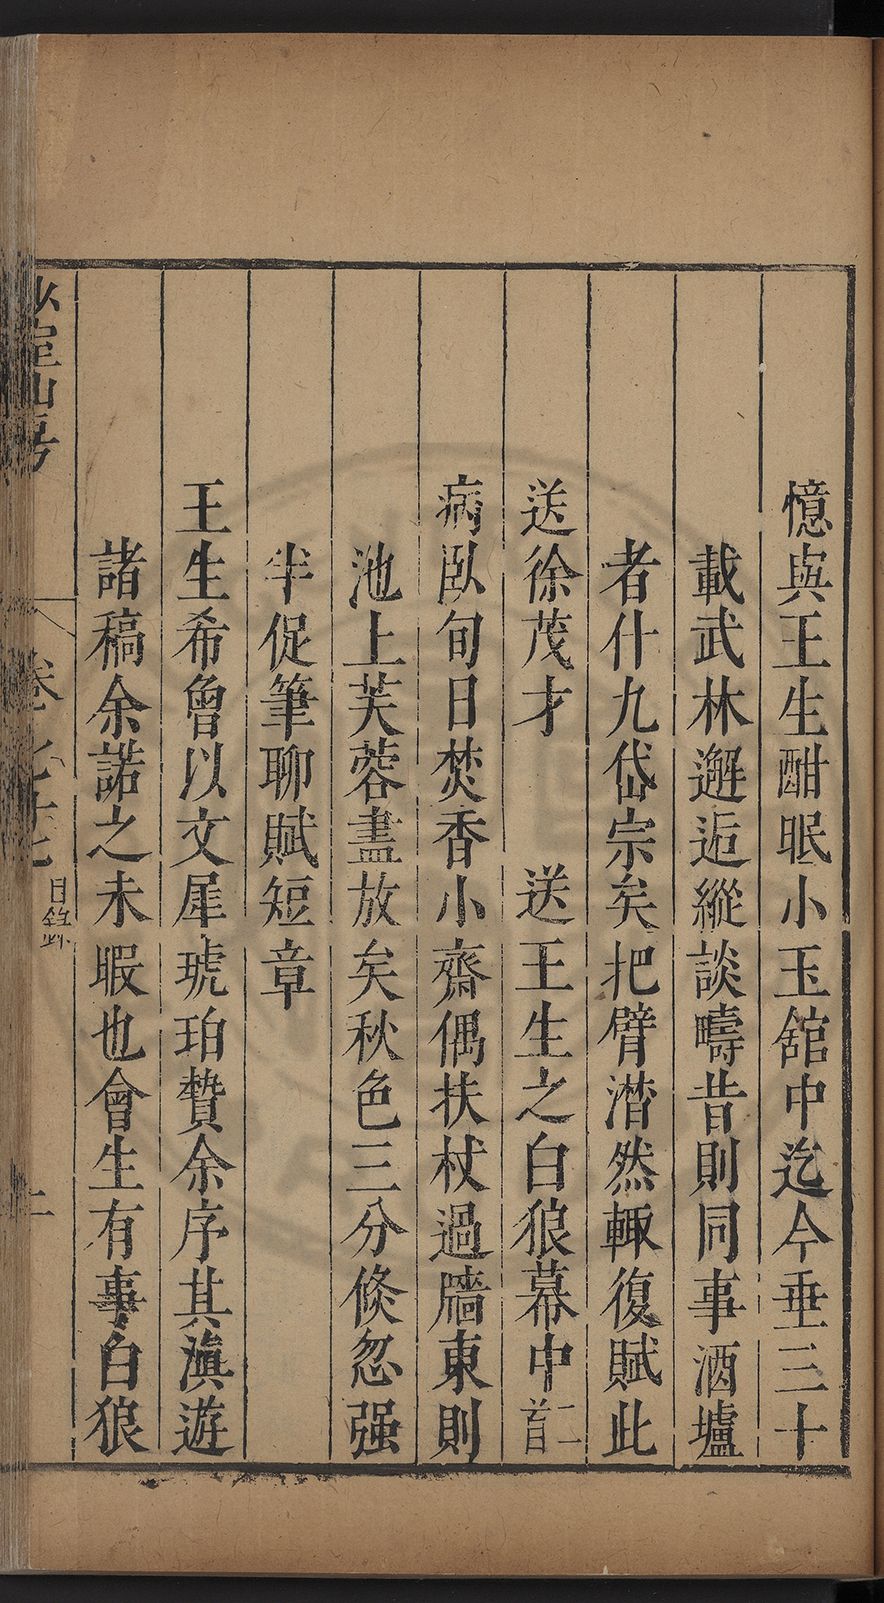 憶與王生酣眠小玉舘中迄今垂三十
載武林邂逅縱談疇昔則同事酒壚
者什九岱宗矣把臂潸然輙復賦此
送徐茂才　送王生之白狼幕中二首
病臥旬日焚香小齋偶扶杖過牆東則
池上芙蓉盡放矣秋色三分倐忽强
半促筆聊賦短章
王生希曾以文犀琥珀贄余序其滇遊
諸稿余諾之未暇也會生有事白狼
山房　卷之　目錄　二